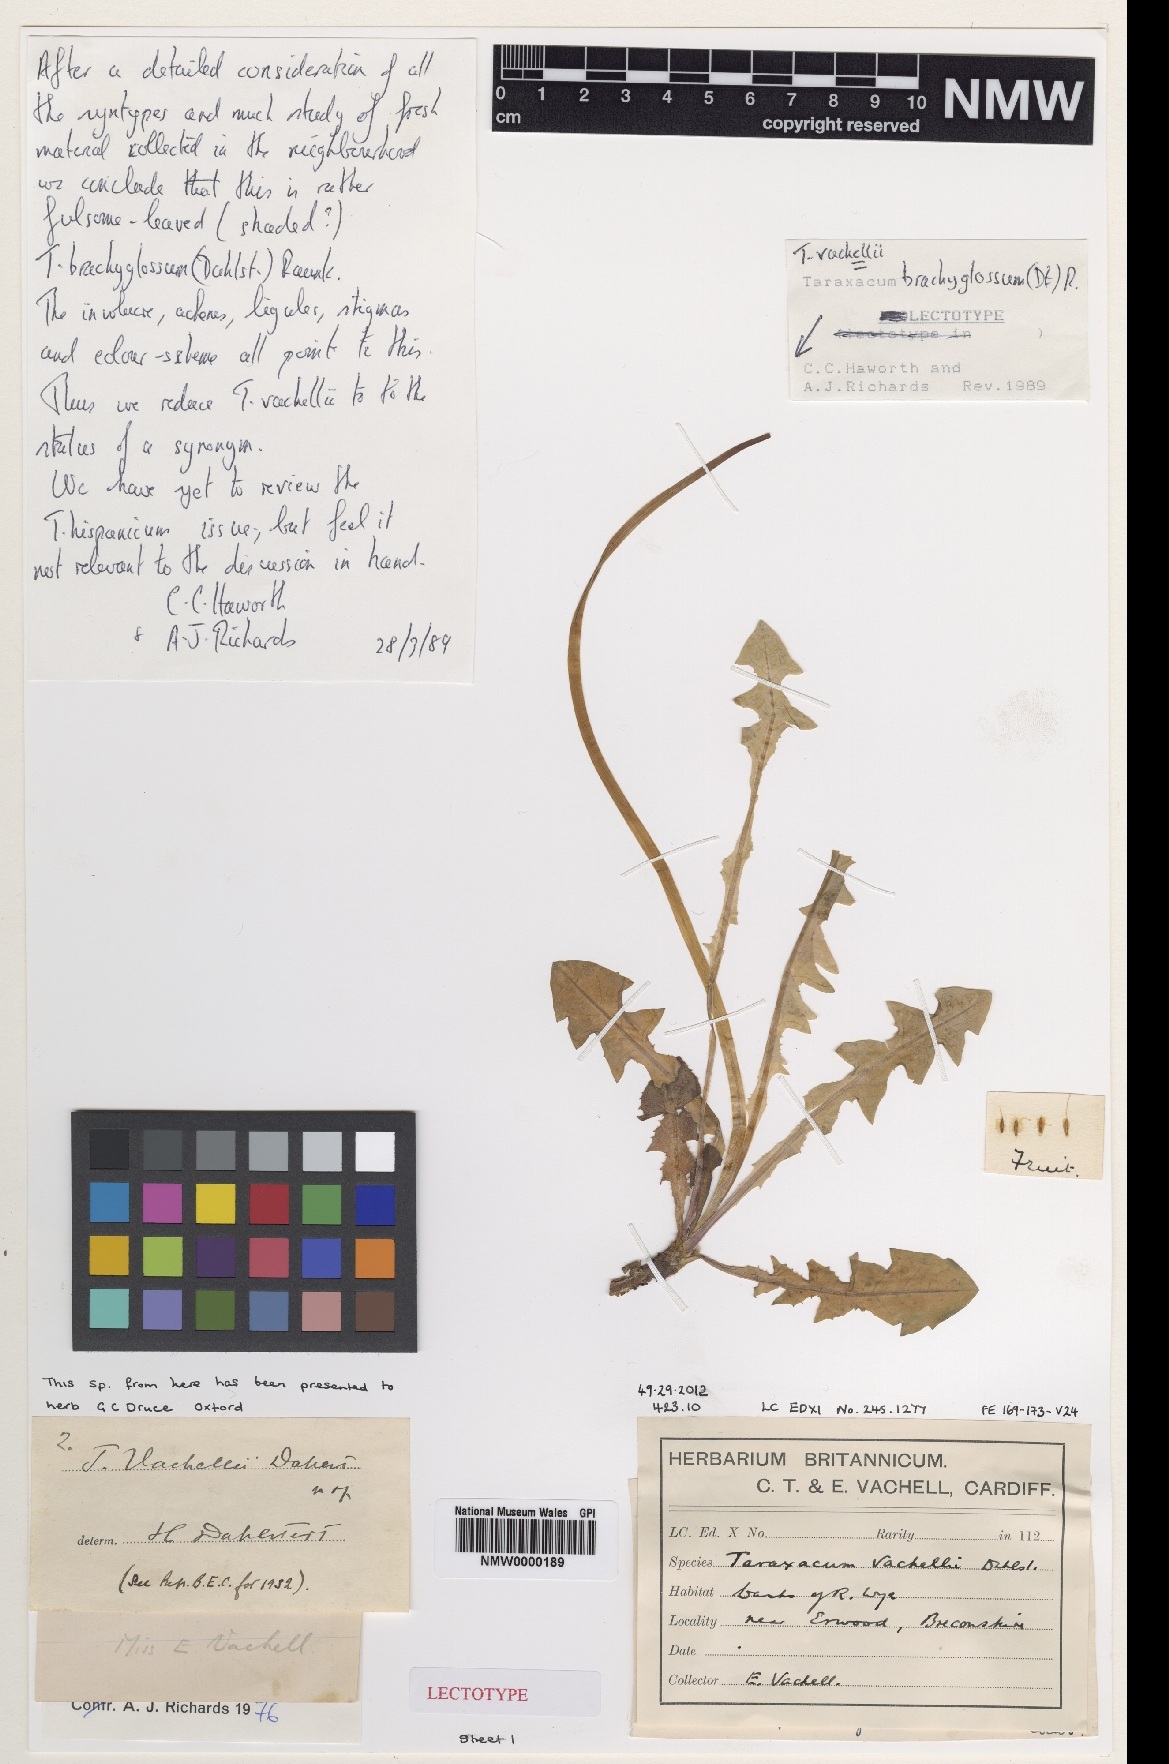 After a detailed consideration of all
the syntypes and much study of fresh
material collected in the neighbourhood
we conclude that this is rather
fulsome-leaved (shaded?)
T. brachyglossum (Dahlst.) Raunk.
The involucre, achenes, ligules, stigmas
and colour-scheme all point to this.
Thus we reduce T. vachellii to to the
status of a synonym.
We have yet to review the
T. hispanicum issue, but feel it
not relevant to the discussion in hand.
C.C. Haworth
& A.J. Richards 28/3/89
0 1 2 3 4 5 6 7 8 9 10
cm
copyright reserved
NMW
T. vachellii
Taraxacum brachyglossum (Dt) R.
LECTOTYPE
(lectotype in )
C.C.Haworth and
A.J.Richards Rev.1989
Fruit.
This sp. from here has been presented to
herb G C Druce Oxford
2.
T. Vachellii Dahlst
n sp
determ. H Dahlstedt
(See Rep. B.E.C. for 1932).
Miss E. Vachell
Confr. A. J. Richards 1976
National Museum Wales GPI
NMW0000189
LECTOTYPE
Sheet 1
49.29.2012
423.10 LC EDXI No. 245.1277 FE 169-173-V24
HERBARIUM BRITANNICUM.
C. T. & E. VACHELL, CARDIFF.
LC. Ed. X No. Rarity in 112
Species Taraxacum Vachellii Dahlst.
Habitat banks of R. Wye
Locality near Erwood, Breconshire
Date
Collector E. Vachell.